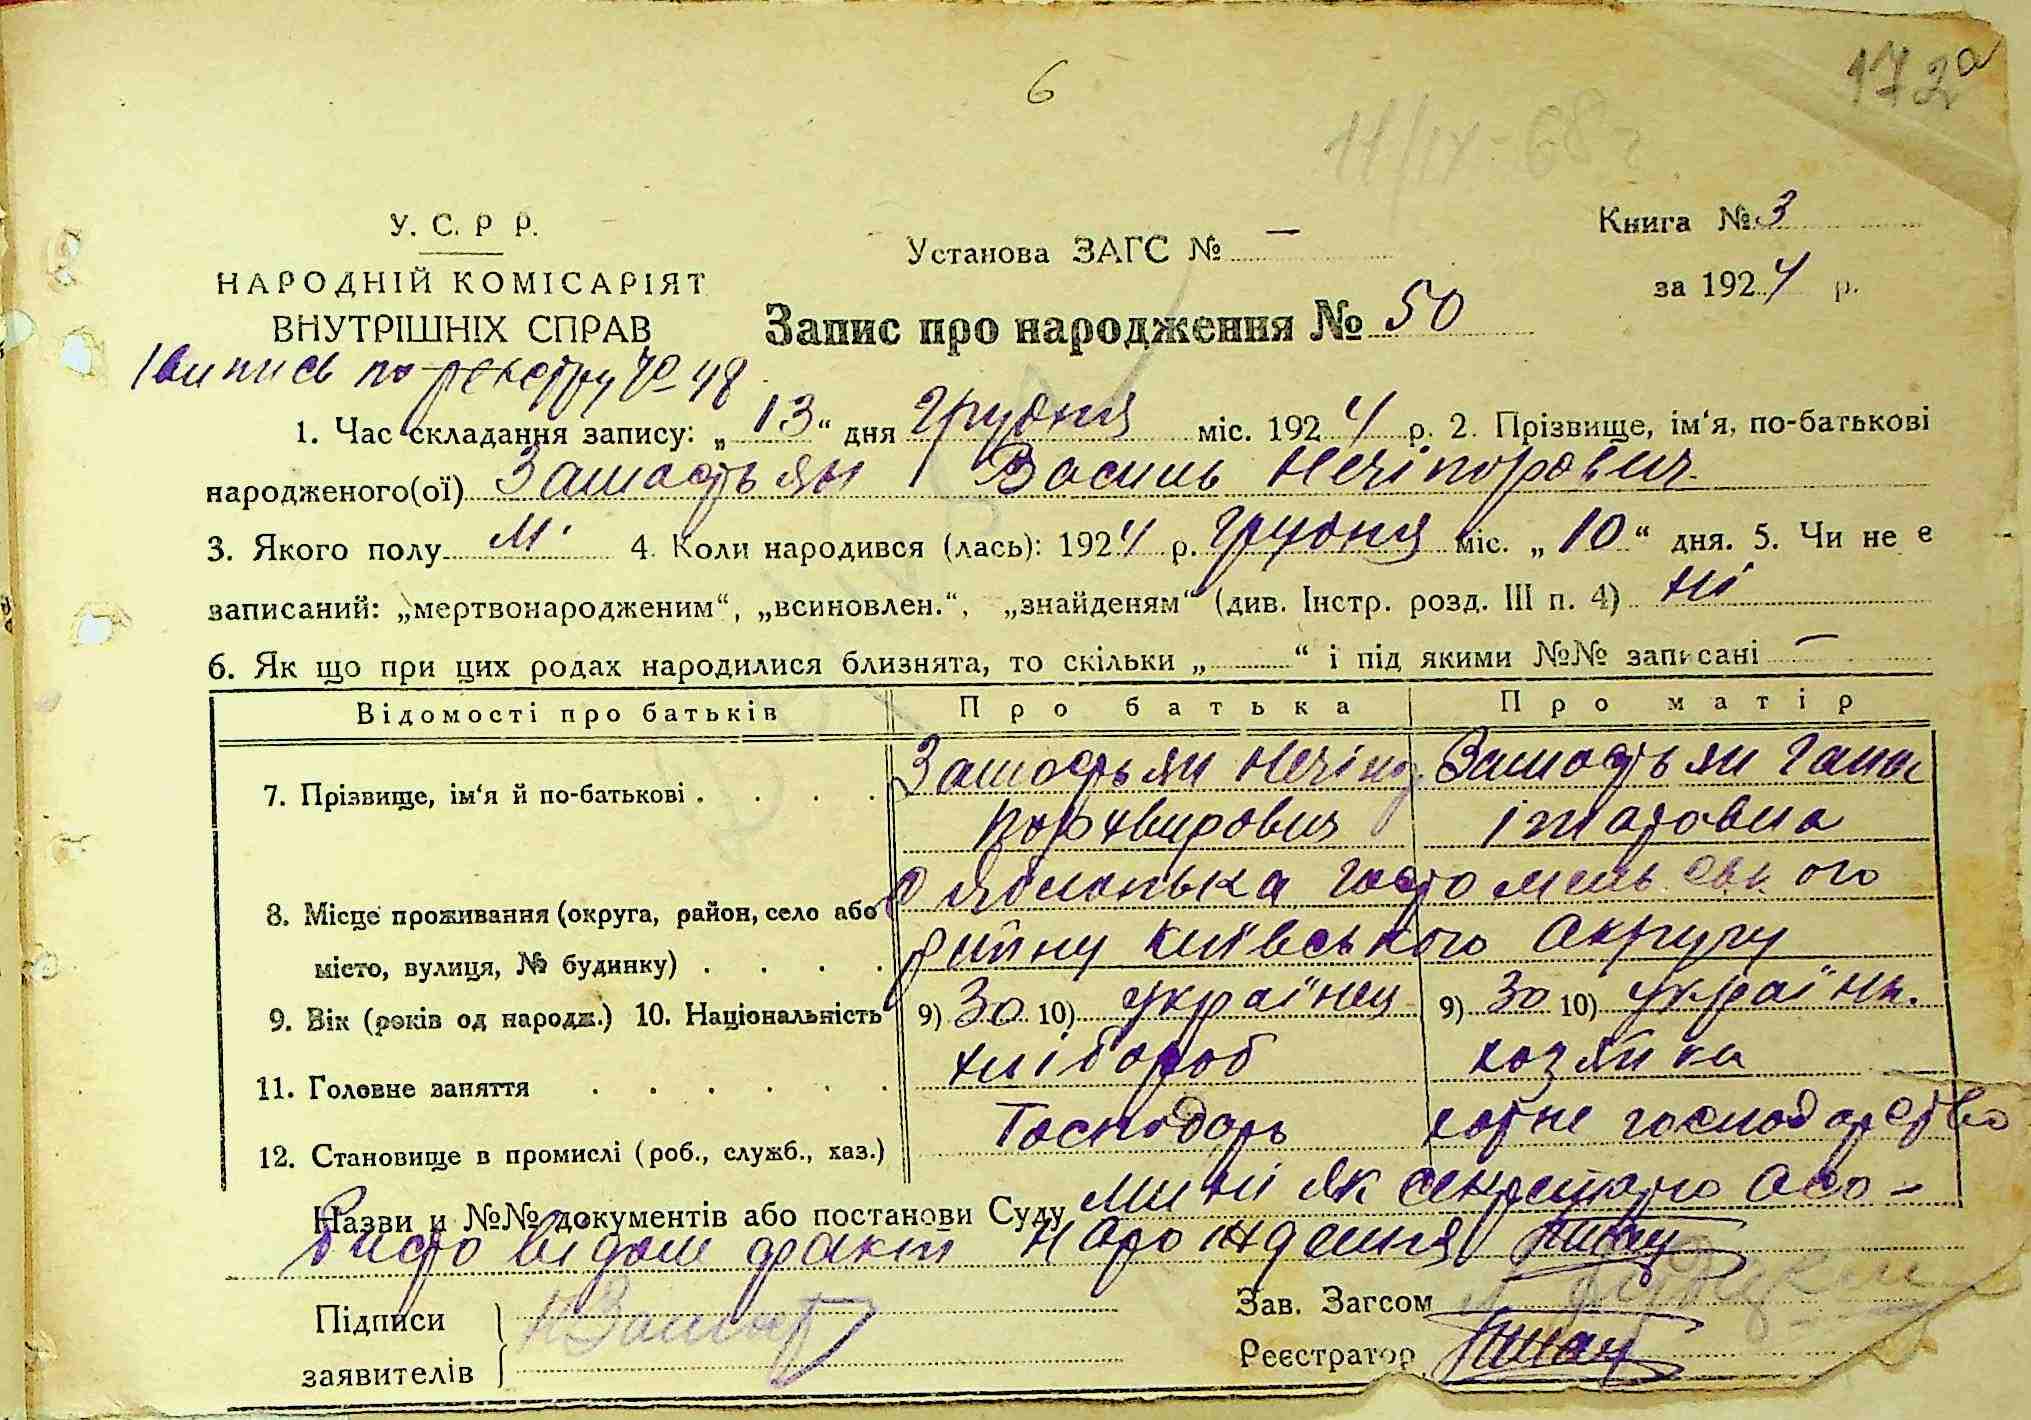 6
172а
11/IX-68 г
У. С. Р Р.
НАРОДНІЙ КОМІСАРІЯТ
ВНУТРІШНІХ СПРАВ
Установа ЗАГС № —
Книга № 3
за 1924 р.
Запис про народження № 50
Випись по реєстру № 48
1. Час складання запису: „13“ дня Грудня міс. 1924 р. 2. Прізвище, ім‘я, по-батькові
народженого(ої) Замостьян Василь Нечіпорович
3. Якого полу М. 4. Коли народився (лась): 1924 р. Грудня міс. „10“ дня. 5. Чи не є
записаний: „мертвонародженим“, „всиновлен.“, „знайденям“ (див. Інстр. розд. III п. 4) Ні
6. Як що при цих родах народилися близнята, то скільки „ “ і під якими №№ записані —
Відомості про батьків Про батька Про матір
7. Прізвище, ім‘я й по-батькові . . . . Замостьян Нечіпор Замостьян Гана
Порхвирович Ігнатовна
8. Місце проживання (округа, район, село або с Яблонька Гостомельського
місто, вулиця, № будинку) . . . . району Київського округу
9. Вік (років од народж.) 10. Національність 9) 30 10) українец 9) 30 10) україн.
11. Головне заняття . . . . . . хлібороб хозяйка
12. Становище в промислі (роб., служб., хаз.) Господарь хатне господарство
Назви и №№ документів або постанови Суду Мині як секретарю осо-
бисто відом факт нарождения
Підписи
заявителів
Зав. Загсом
Реєстратор